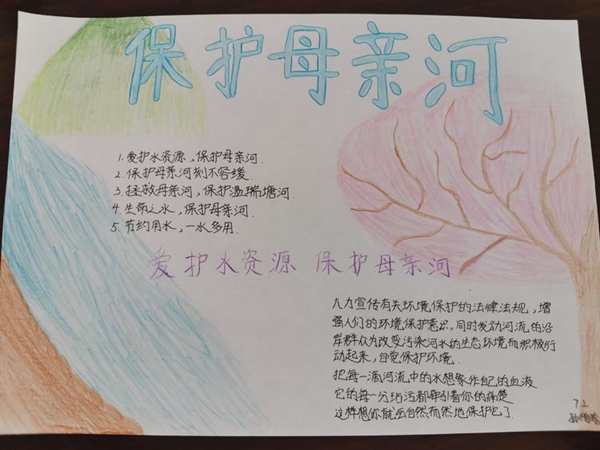 保护母亲河
1. 爱护水资源,保护母亲河.
2. 保护母亲河刻不容缓
3. 拯救母亲河,保护温瑞塘河
4. 生命之水,保护母亲河.
5. 节约用水,一水多用.
爱护水资源 保护母亲河
大力宣传有关环境保护的法律法规,增
强人们的环境保护意识,同时发动河流的沿
岸群众为改变污染河水的生态环境而积极行
动起来,自觉保护环境.
把每一滴河流中的水想象作自己的血液
它的每一分污浊都牵引着你的痛楚
这样想你就会自然而然地保护它了.
7.2